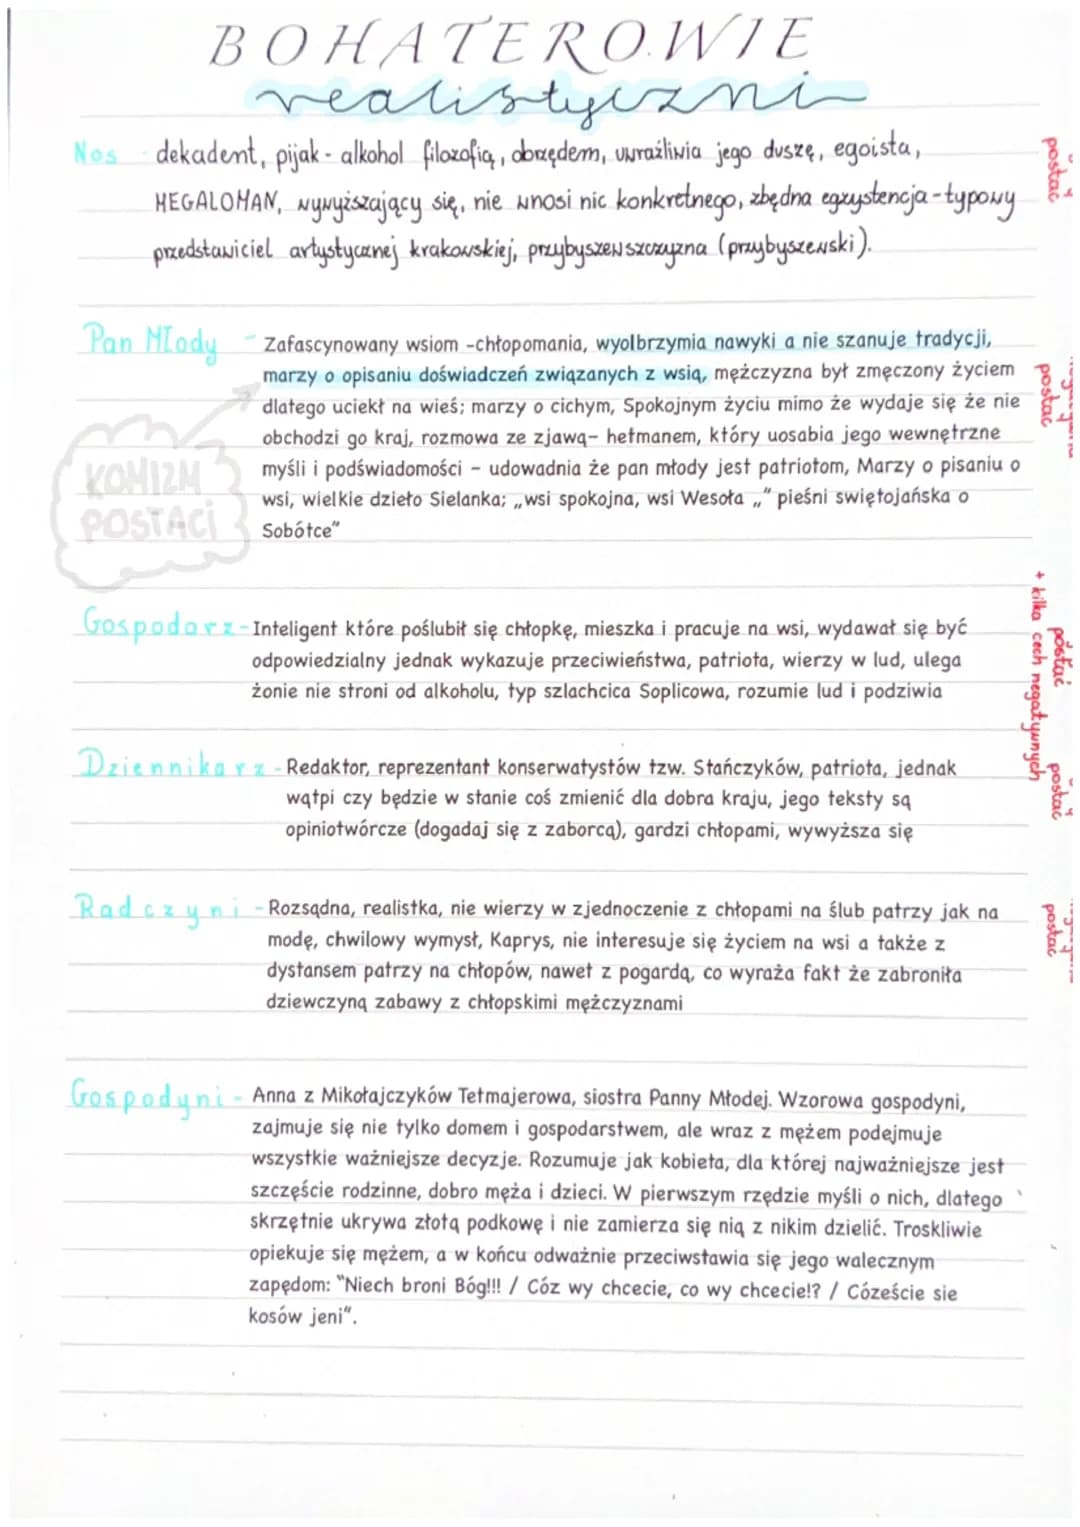 BOHATEROWIE
realistyczni
Nos - dekadent, pijak - alkohol filozofią, obrzędem, uwrażliwia jego duszę, egoista,
MEGALOMAN, wywyższający się, nie wnosi nic konkretnego, zbędna egzystencja - typowy
przedstawiciel artystycznej krakowskiej, przybyszewszczyzna (przybyszewski).
postać
Pan Młody - Zafascynowany wsiom -chłopomania, wyolbrzymia nawyki a nie szanuje tradycji,
marzy o opisaniu doświadczeń związanych z wsią, mężczyzna był zmęczony życiem
dlatego uciekł na wieś; marzy o cichym, Spokojnym życiu mimo że wydaje się że nie
obchodzi go kraj, rozmowa ze zjawą- hetmanem, który uosabia jego wewnętrzne
myśli i podświadomości - udowadnia że pan młody jest patriotom, Marzy o pisaniu o
wsi, wielkie dzieło Sielanka; „wsi spokojna, wsi Wesoła „" pieśni swiętojańska o
Sobótce"
KOMIZM
POSTACI
postać
Gospodarz - Inteligent które poślubił się chłopkę, mieszka i pracuje na wsi, wydawał się być
odpowiedzialny jednak wykazuje przeciwieństwa, patriota, wierzy w lud, ulega
żonie nie stroni od alkoholu, typ szlachcica Soplicowa, rozumie lud i podziwia
postać
+ kilka cech negatywnych
Dziennikarz - Redaktor, reprezentant konserwatystów tzw. Stańczyków, patriota, jednak
wątpi czy będzie w stanie coś zmienić dla dobra kraju, jego teksty są
opiniotwórcze (dogadaj się z zaborcą), gardzi chłopami, wywyższa się
postać
Radczyni - Rozsądna, realistka, nie wierzy w zjednoczenie z chłopami na ślub patrzy jak na
modę, chwilowy wymysł, Kaprys, nie interesuje się życiem na wsi a także z
dystansem patrzy na chłopów, nawet z pogardą, co wyraża fakt że zabroniła
dziewczyną zabawy z chłopskimi mężczyznami
postać
Gospodyni - Anna z Mikołajczyków Tetmajerowa, siostra Panny Młodej. Wzorowa gospodyni,
zajmuje się nie tylko domem i gospodarstwem, ale wraz z mężem podejmuje
wszystkie ważniejsze decyzje. Rozumuje jak kobieta, dla której najważniejsze jest
szczęście rodzinne, dobro męża i dzieci. W pierwszym rzędzie myśli o nich, dlatego
skrzętnie ukrywa złotą podkowę i nie zamierza się nią z nikim dzielić. Troskliwie
opiekuje się mężem, a w końcu odważnie przeciwstawia się jego walecznym
zapędom: "Niech broni Bóg!!! / Cóz wy chcecie, co wy chcecie!? / Cózeście sie
kosów jeni".